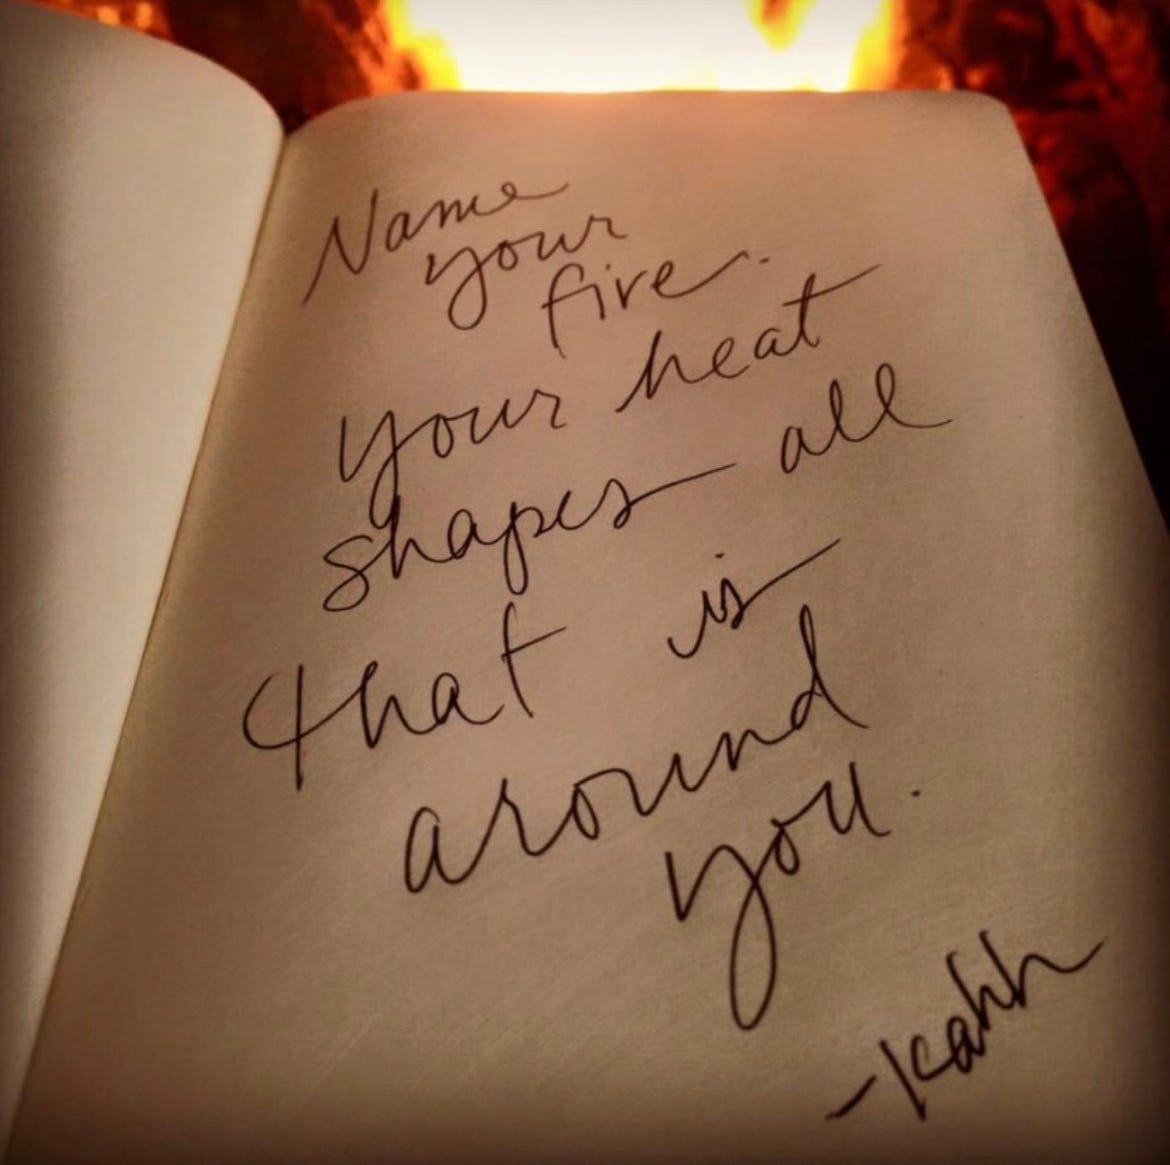 Name
your
fire.
your heat
shapes all
that is
around
you.
-kahh